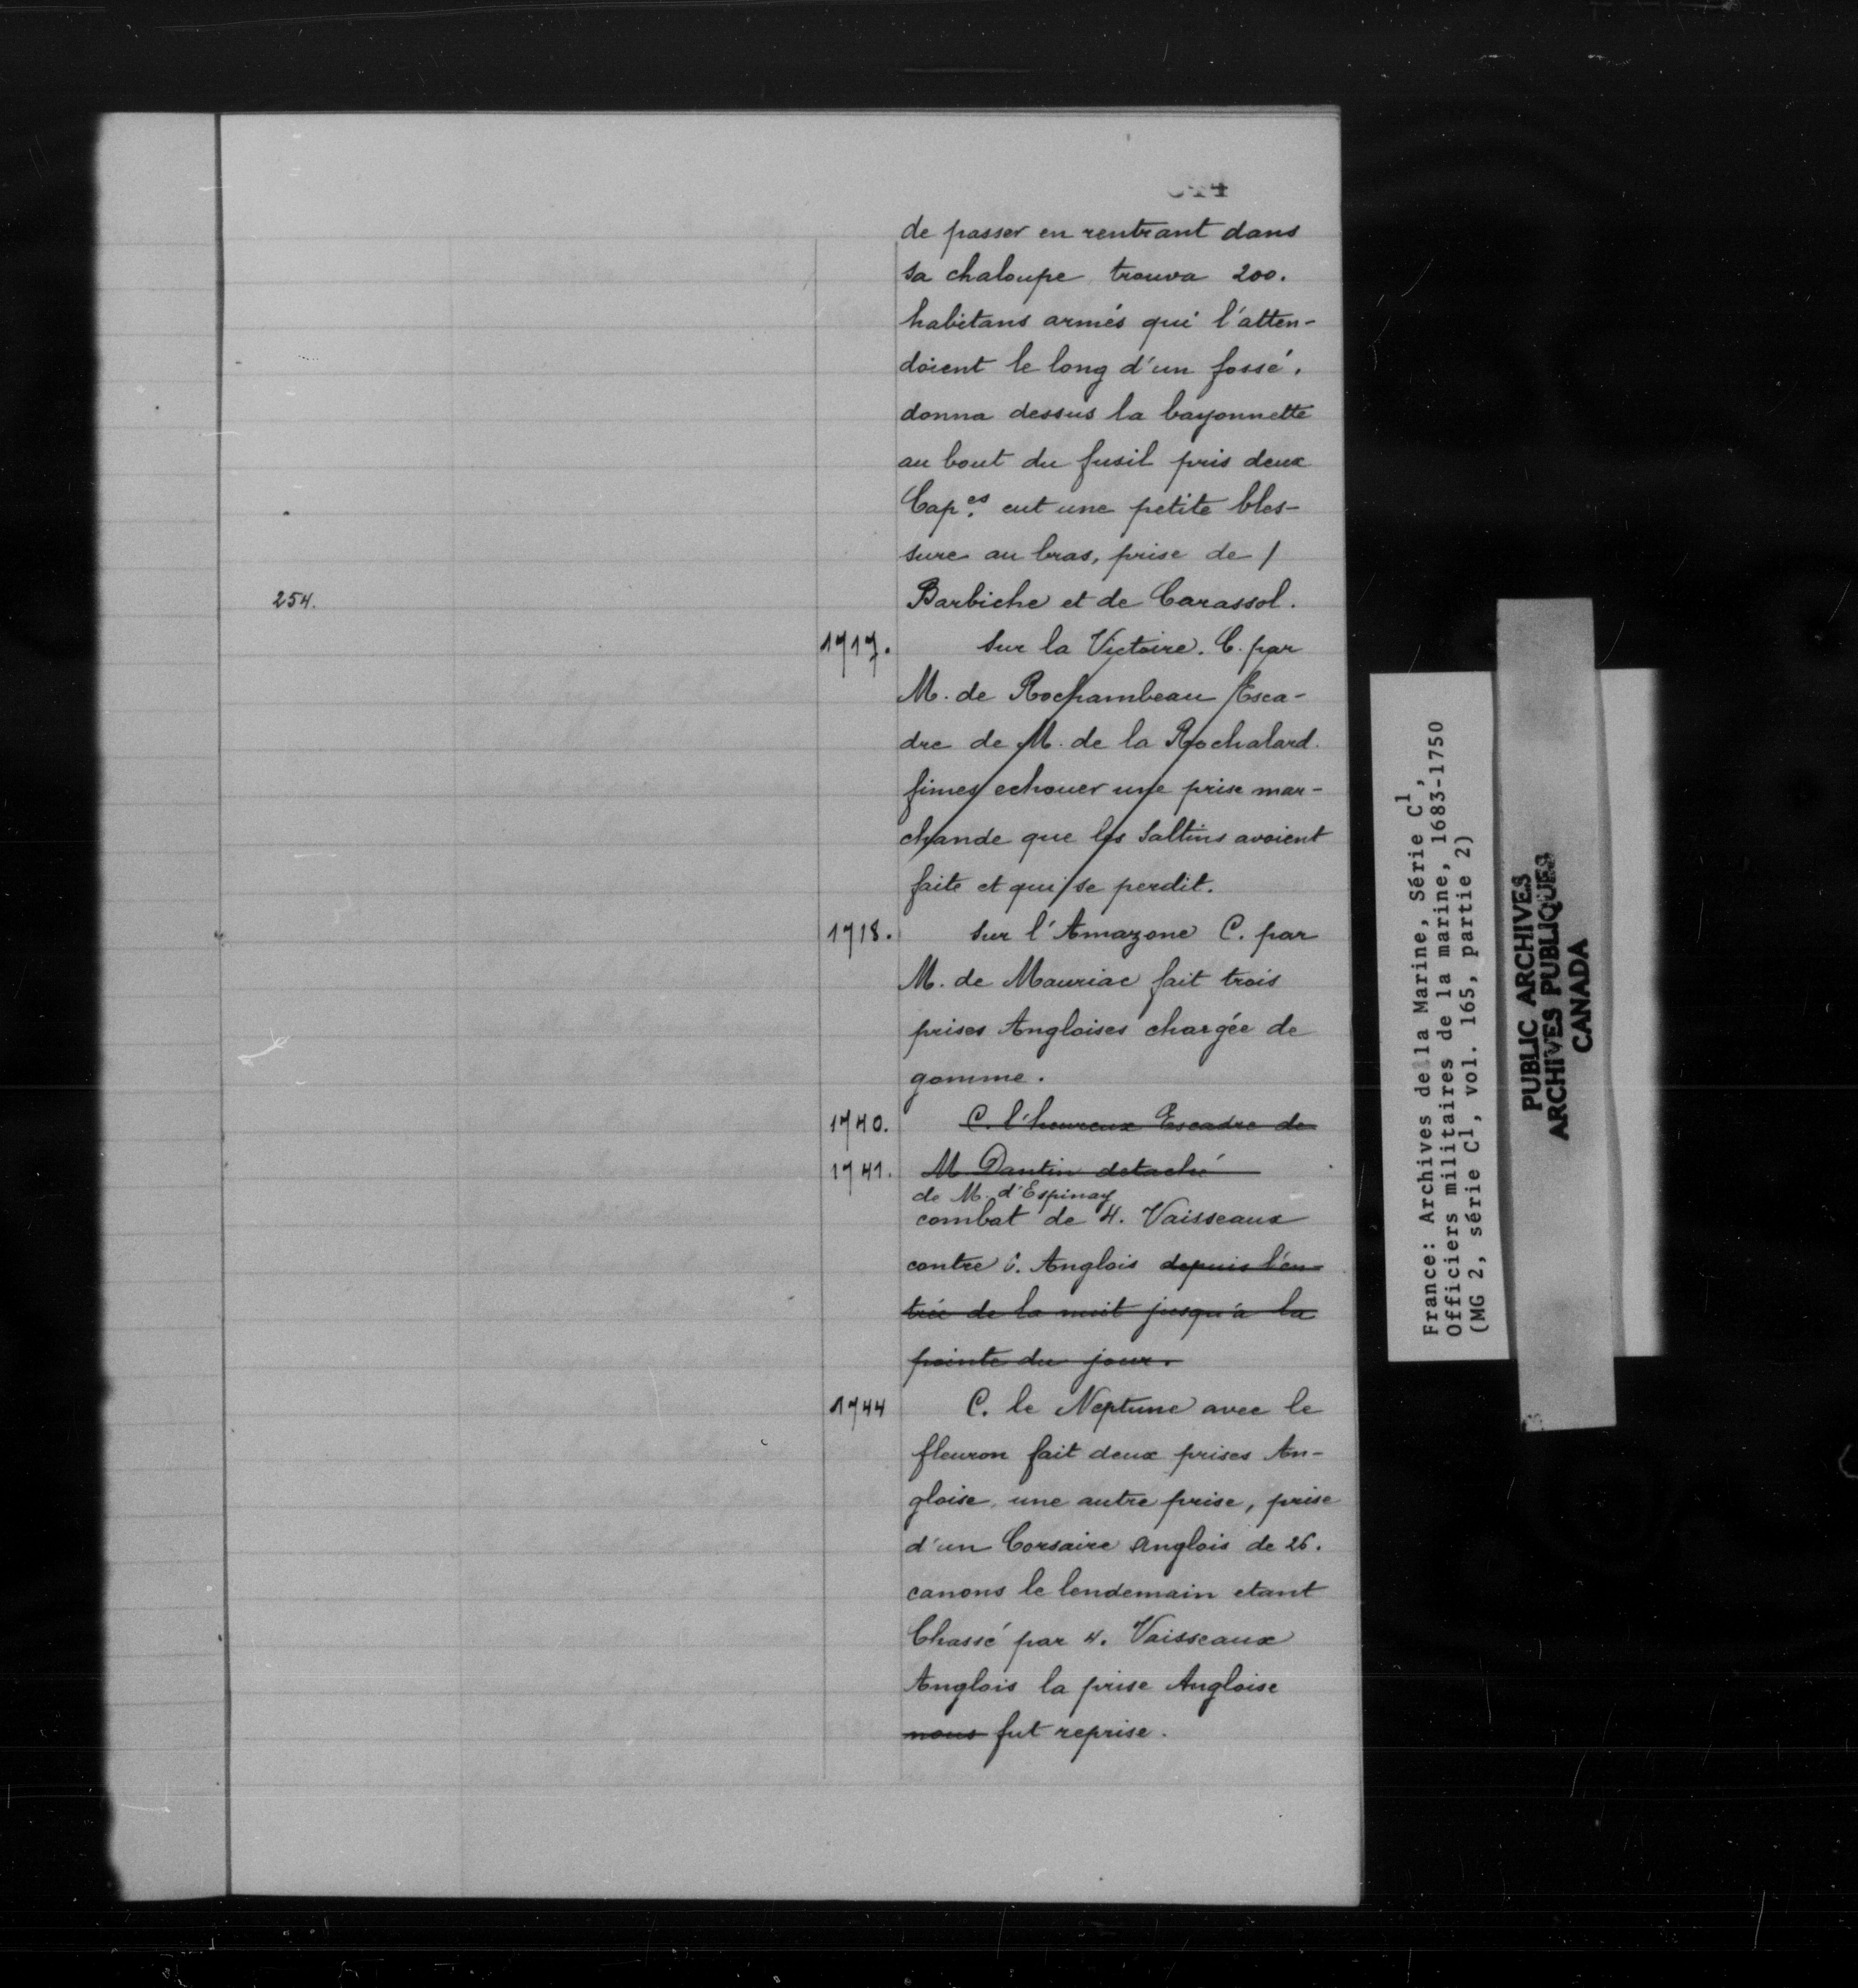 de passer en rentrant dans
sa chaloupe trouva 200.
habitans armés qui l'atten-
doient le long d'un fossé,
donna dessus la bayonnette
au bout du fusil pris deux
Cap.es eut une petite bles-
sure au bras, prise de /
254. Barbiche et de Carassol.
1717. sur la Victoire. C. par
M. de Rochambeau Esca-
dre de M. de la Rochalard.
fimes echouer une prise mar-
chande que les Saltins avoient
faite et qui se perdit.
1718. sur l'Amazone C. par
M. de Mauriac fait trois
prises Angloises chargée de
gomme.
1740. C. l'heureux Escadre de
1741. M Dantin detaché
de M. d'Espinay
combat de 4. Vaisseaux
contre Anglois depuis l'en-
trée de la nuit jusqu'à la
pointe du jour.
1744 C. le Neptune avec le
fleuron fait deux prises An-
gloise, une autre prise, prise
d'un Corsaire Anglois de 26.
canons le lendemain etant
Chassé par 4. Vaisseaux
Anglois la prise Angloise
nous fut reprise.
France: Archives de la Marine, Série C1,
Officiers militaires de la marine, 1683-1750
(MG 2, série C1, vol. 165, partie 2)
PUBLIC ARCHIVES
ARCHIVES PUBLIQUES
CANADA